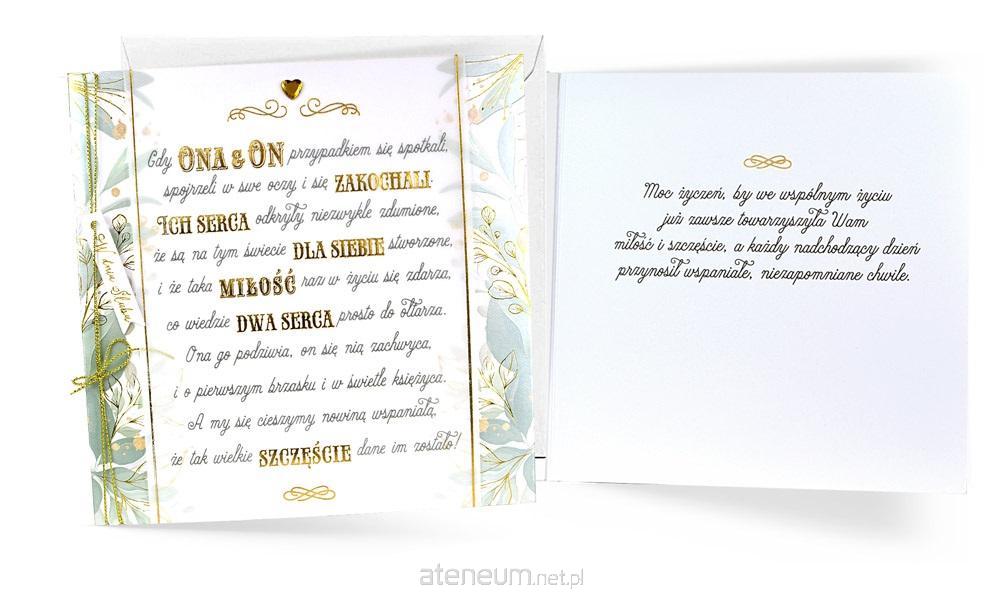 Gdy ONA & ON przypadkiem się spotkali,
spojrzeli w swe oczy i się ZAKOCHALI.
ICH SERCA odkryły niezwykle zdumione,
że są na tym świecie DLA SIEBIE stworzone,
i że taka MIŁOŚĆ raz w życiu się zdarza,
co wiedzie DWA SERCA prosto do ołtarza.
Ona go podziwia, on się nią zachwyca,
i o pierwszym brzasku i w świetle księżyca.
A my się cieszymy nowiną wspaniałą,
że tak wielkie SZCZĘŚCIE dane im zostało!
W dniu Ślubu
Moc życzeń, by we wspólnym życiu
już zawsze towarzyszyła Wam
miłość i szczęście, a każdy nadchodzący dzień
przynosił wspaniałe, niezapomniane chwile.
ateneum.net.pl